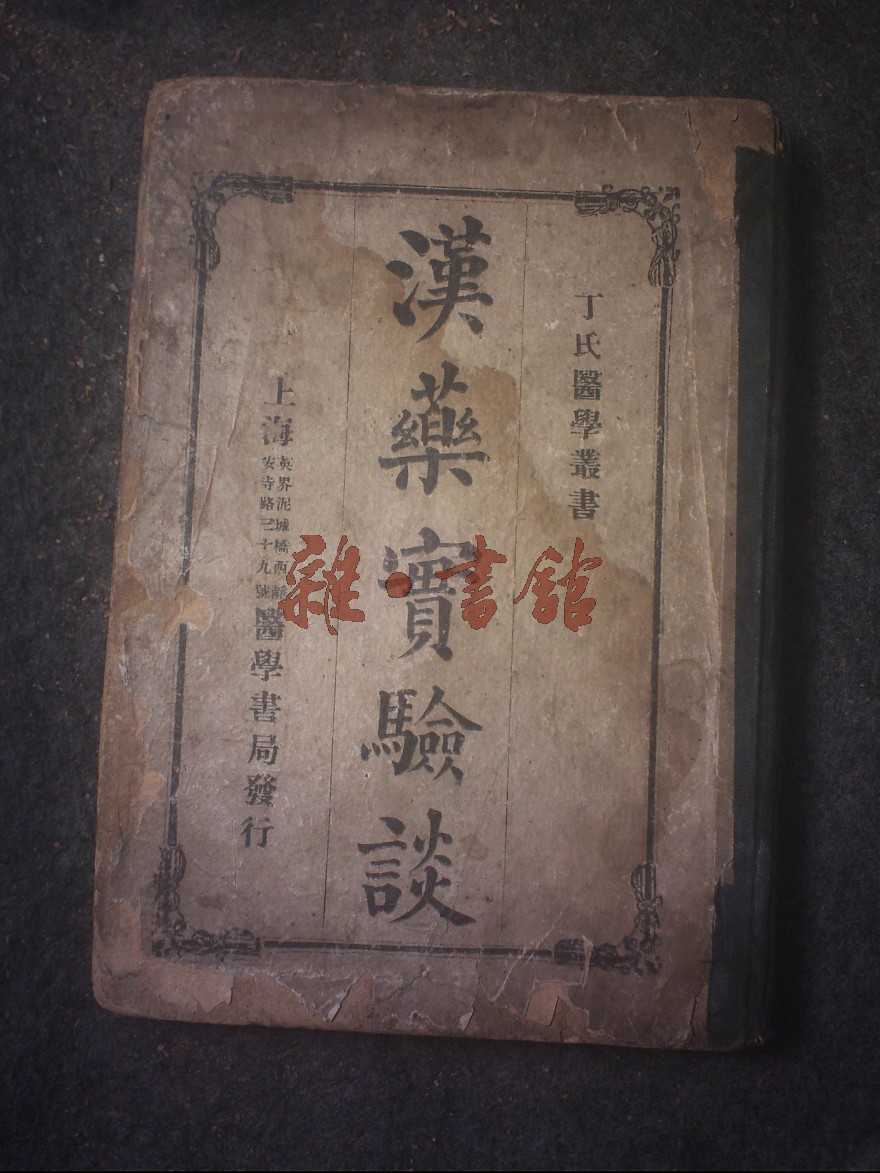 丁氏醫學叢書
漢藥實驗談
上海
英界泥城橋西
安寺路三十九號
醫學書局發行
雜·書館